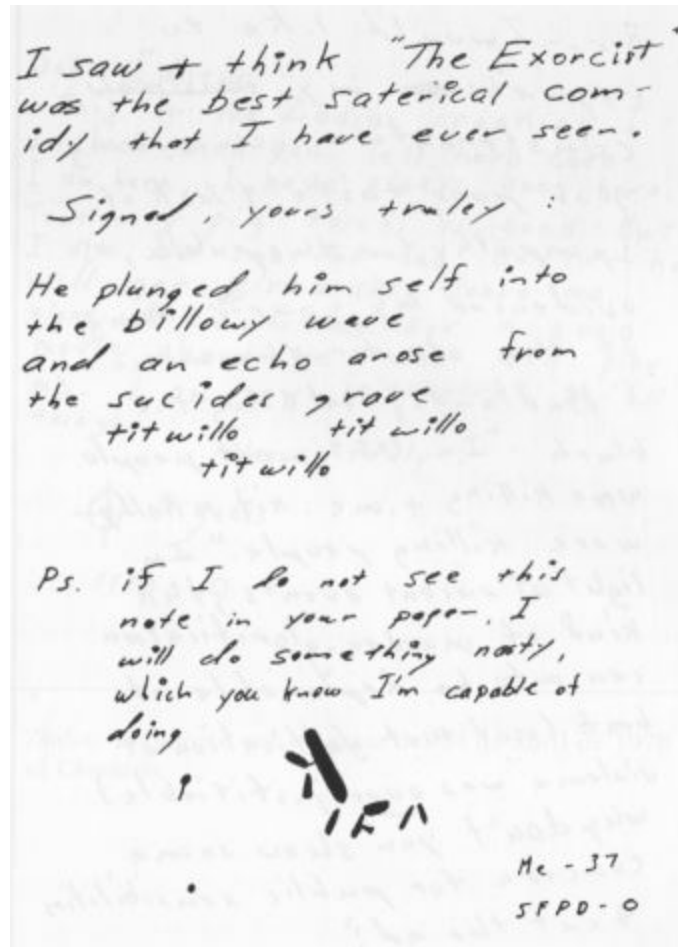 I saw + think "The Exorcist"
was the best saterical com-
idy that I have ever seen.
Signed, yours truley :
He plunged him self into
the billowy wave
and an echo arose from
the sucides grave
tit willo tit willo
tit willo
Ps. if I do not see this
note in your paper, I
will do something nasty,
which you know I'm capable of
doing
Me - 37
SFPD - 0